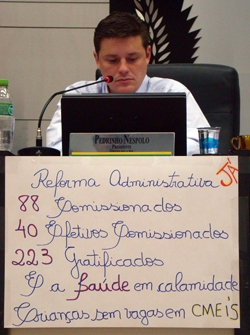 PEDRINHO NESPOLO
Presidente
Reforma Administrativa JÁ
88 Comissionados
40 Efetivos Comissionados
223 Gratificados
E a Saúde em calamidade
Crianças sem vagas em CMEIS